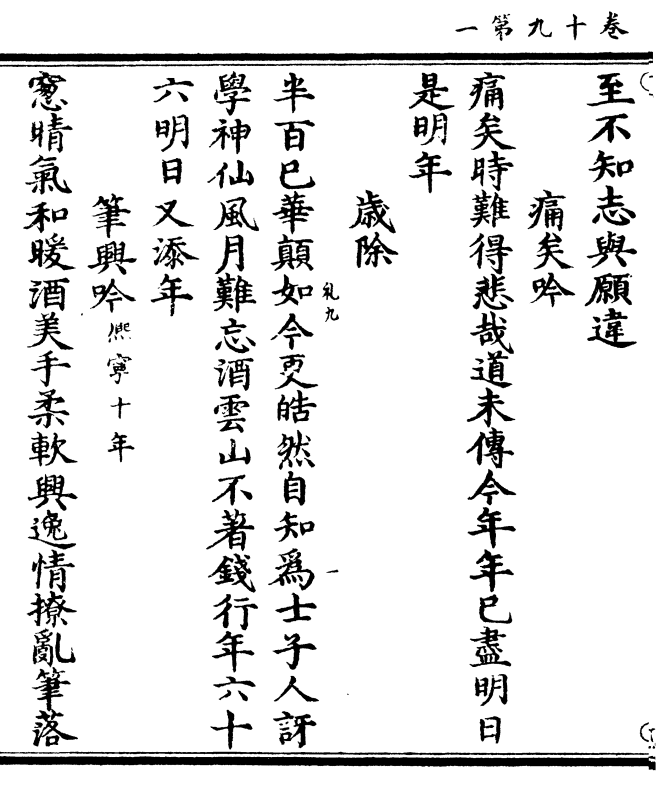 卷十九第一
至不知志與願違
痛矣吟
痛矣時難得悲哉道未傳今年年已盡明日
是明年
歲除
半百已華顛如今更皓然自知為士子人訝
學神仙風月難忘酒雲山不著錢行年六十
六明日又添年
筆興吟熈寧十年
窻晴氣和暖酒美手柔軟興逸情撩亂筆落